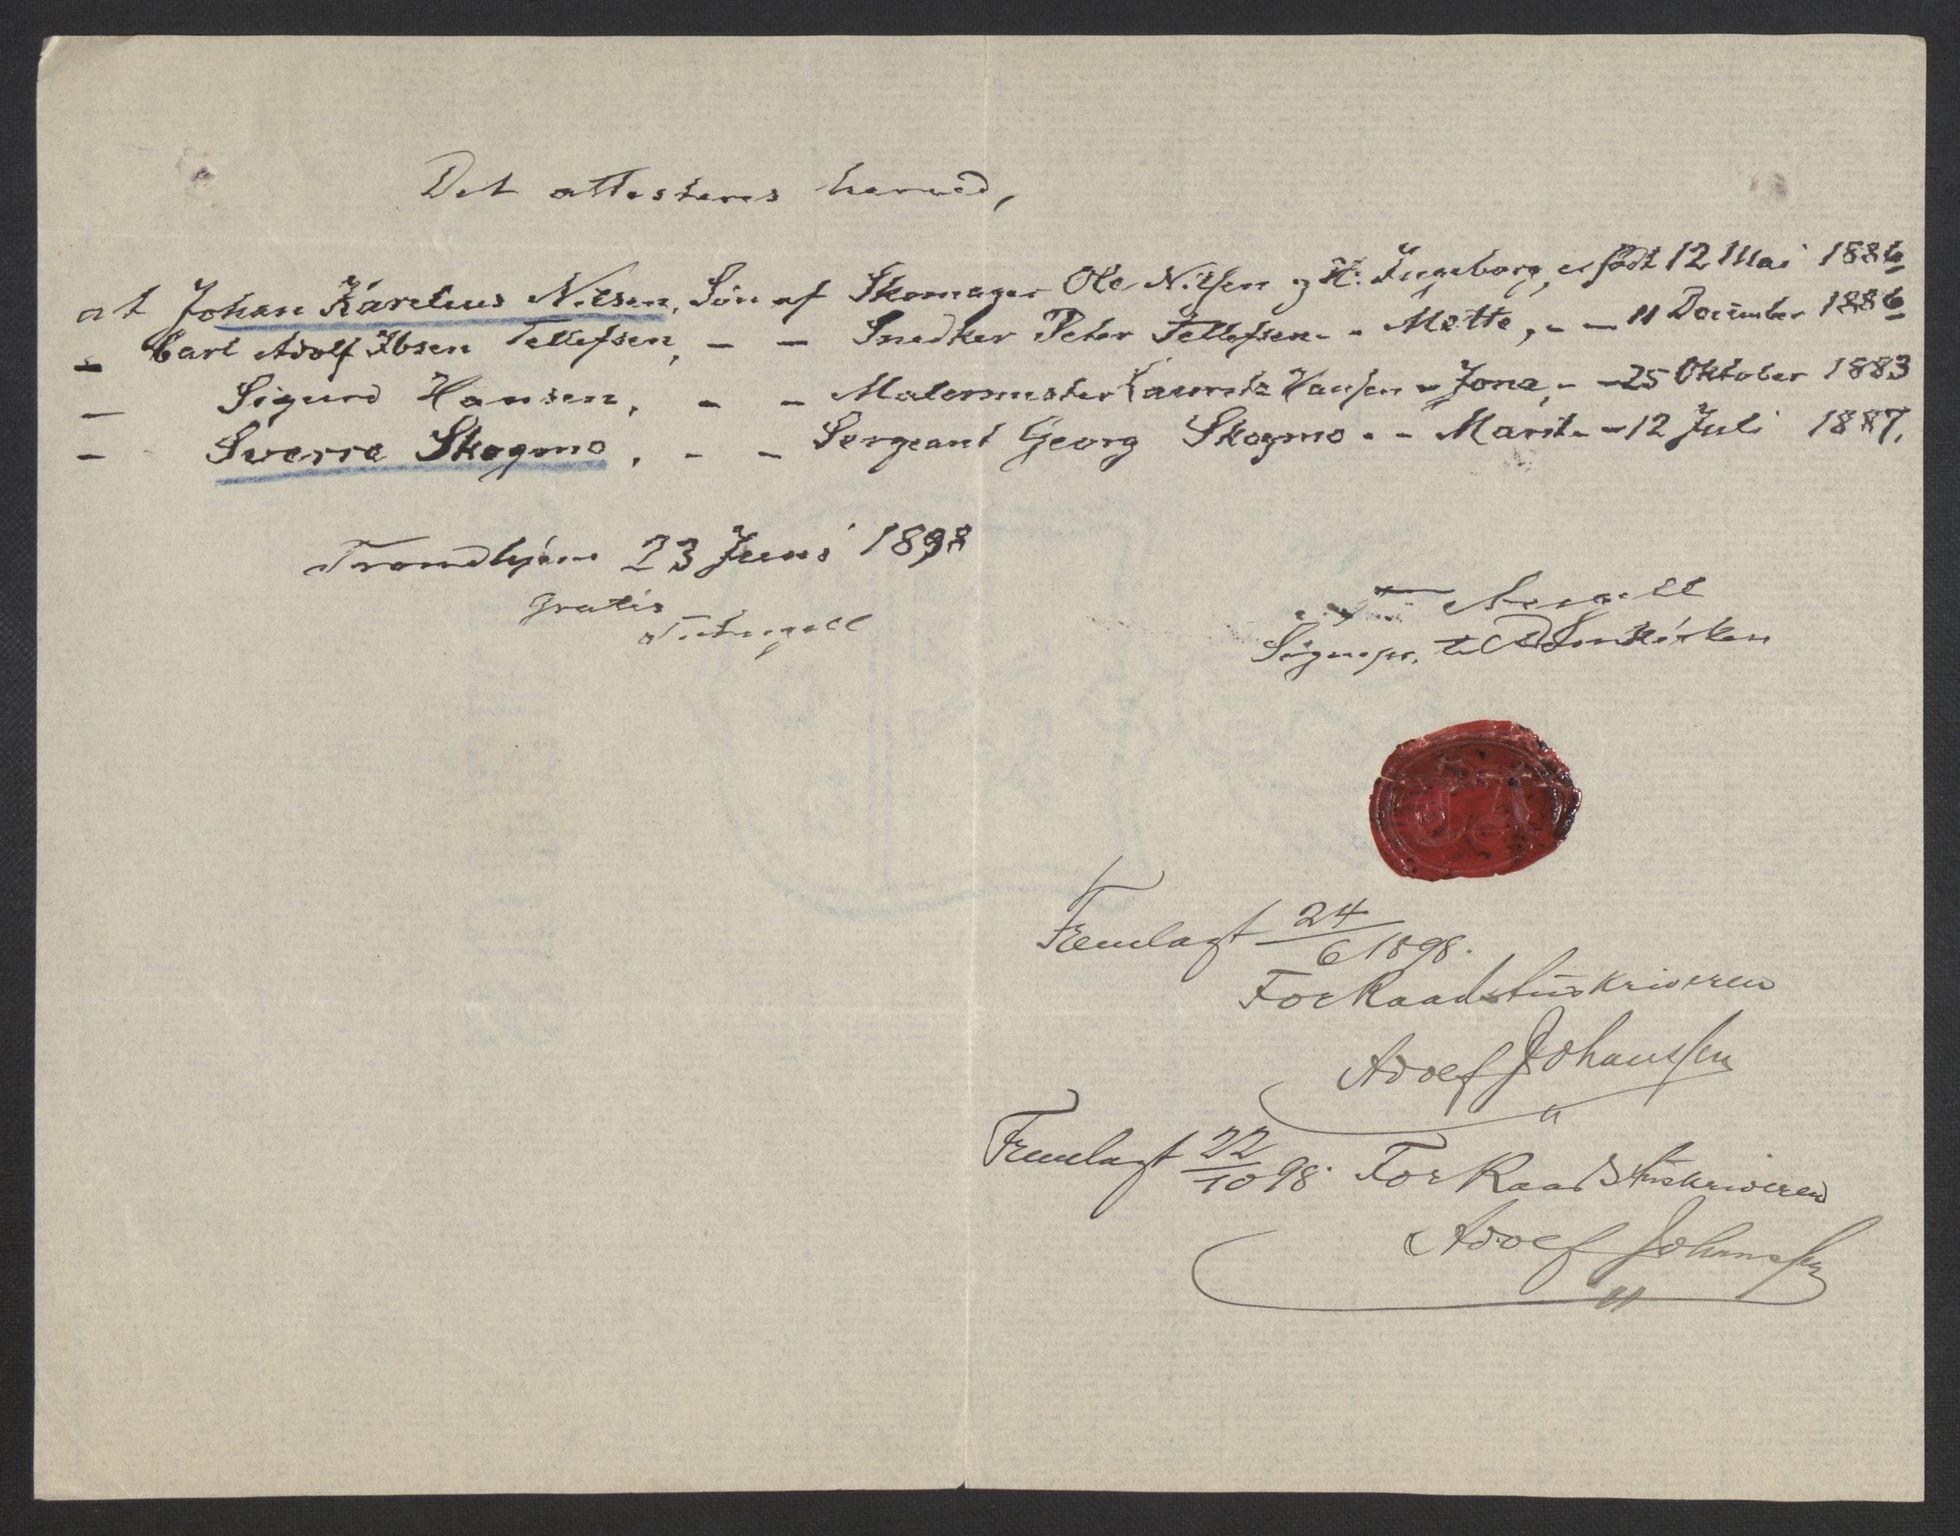 Det attesteres herved,
at Johan Karelius Nilsen, Søn af Skomager Ole Nilsen og H. Ingeborg, er født 12 Mai 1886
– Carl Adolf Ibsen Tellefsen, – – Snedker Peter Tellefsen – – Mette, – – 11 December 1886
– Sigurd Hansen, – – Malermester Lauritz Hansen – Jona, – – 25 Oktober 1883
– Sverre Skogmo, – – Sergeant Georg Skogmo – – Marit – – 12 Juli 1887.
Trondhjem 23 Juni 1898
Gratis
Angell
Angell
Sognepr. til Domkirken
Fremlagt 24/6 1898.
For Raadstuskriveren
Adolf Johanssen
Fremlagt 22/10 98. For Raadstuskriveren
Adolf Johanssen